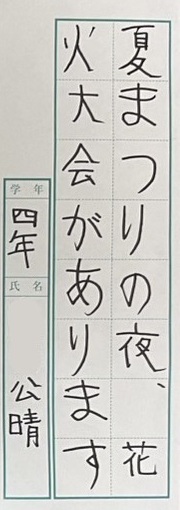 夏まつりの夜、花
火大会があります
学年
四年
氏名
公晴